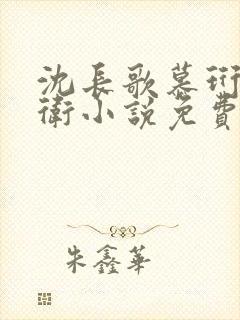 沈長歌慕珩
衛小說免費
朱鑫華